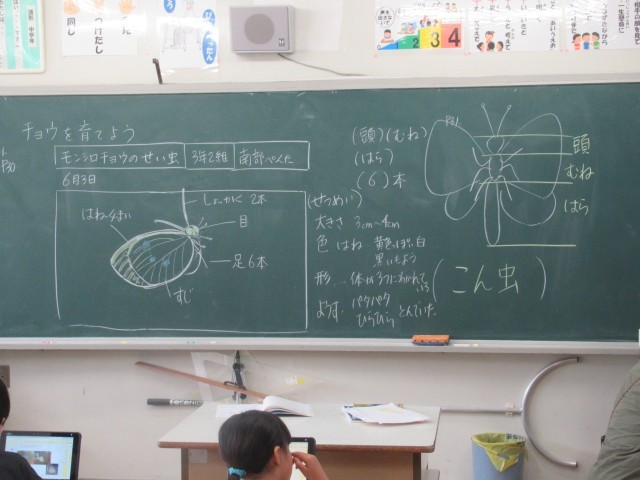 チョウを育てよう
P30
モンシロチョウのせい虫 3年2組 南部ぺんた
6月3日
しょっかく 2本
目
はね4まい
足6本
すじ
(せつめい)
大きさ 3cm〜4cm
色 はね 黄色っぽい白
黒いもよう
形 体が3つにわかれて
いる
ようす パタパタ
ひらひら とんでいた
(頭)(むね)
(はら)
(6)本
P31
頭
むね
はら
(こん虫)
同じ
つけたし
2 3 4